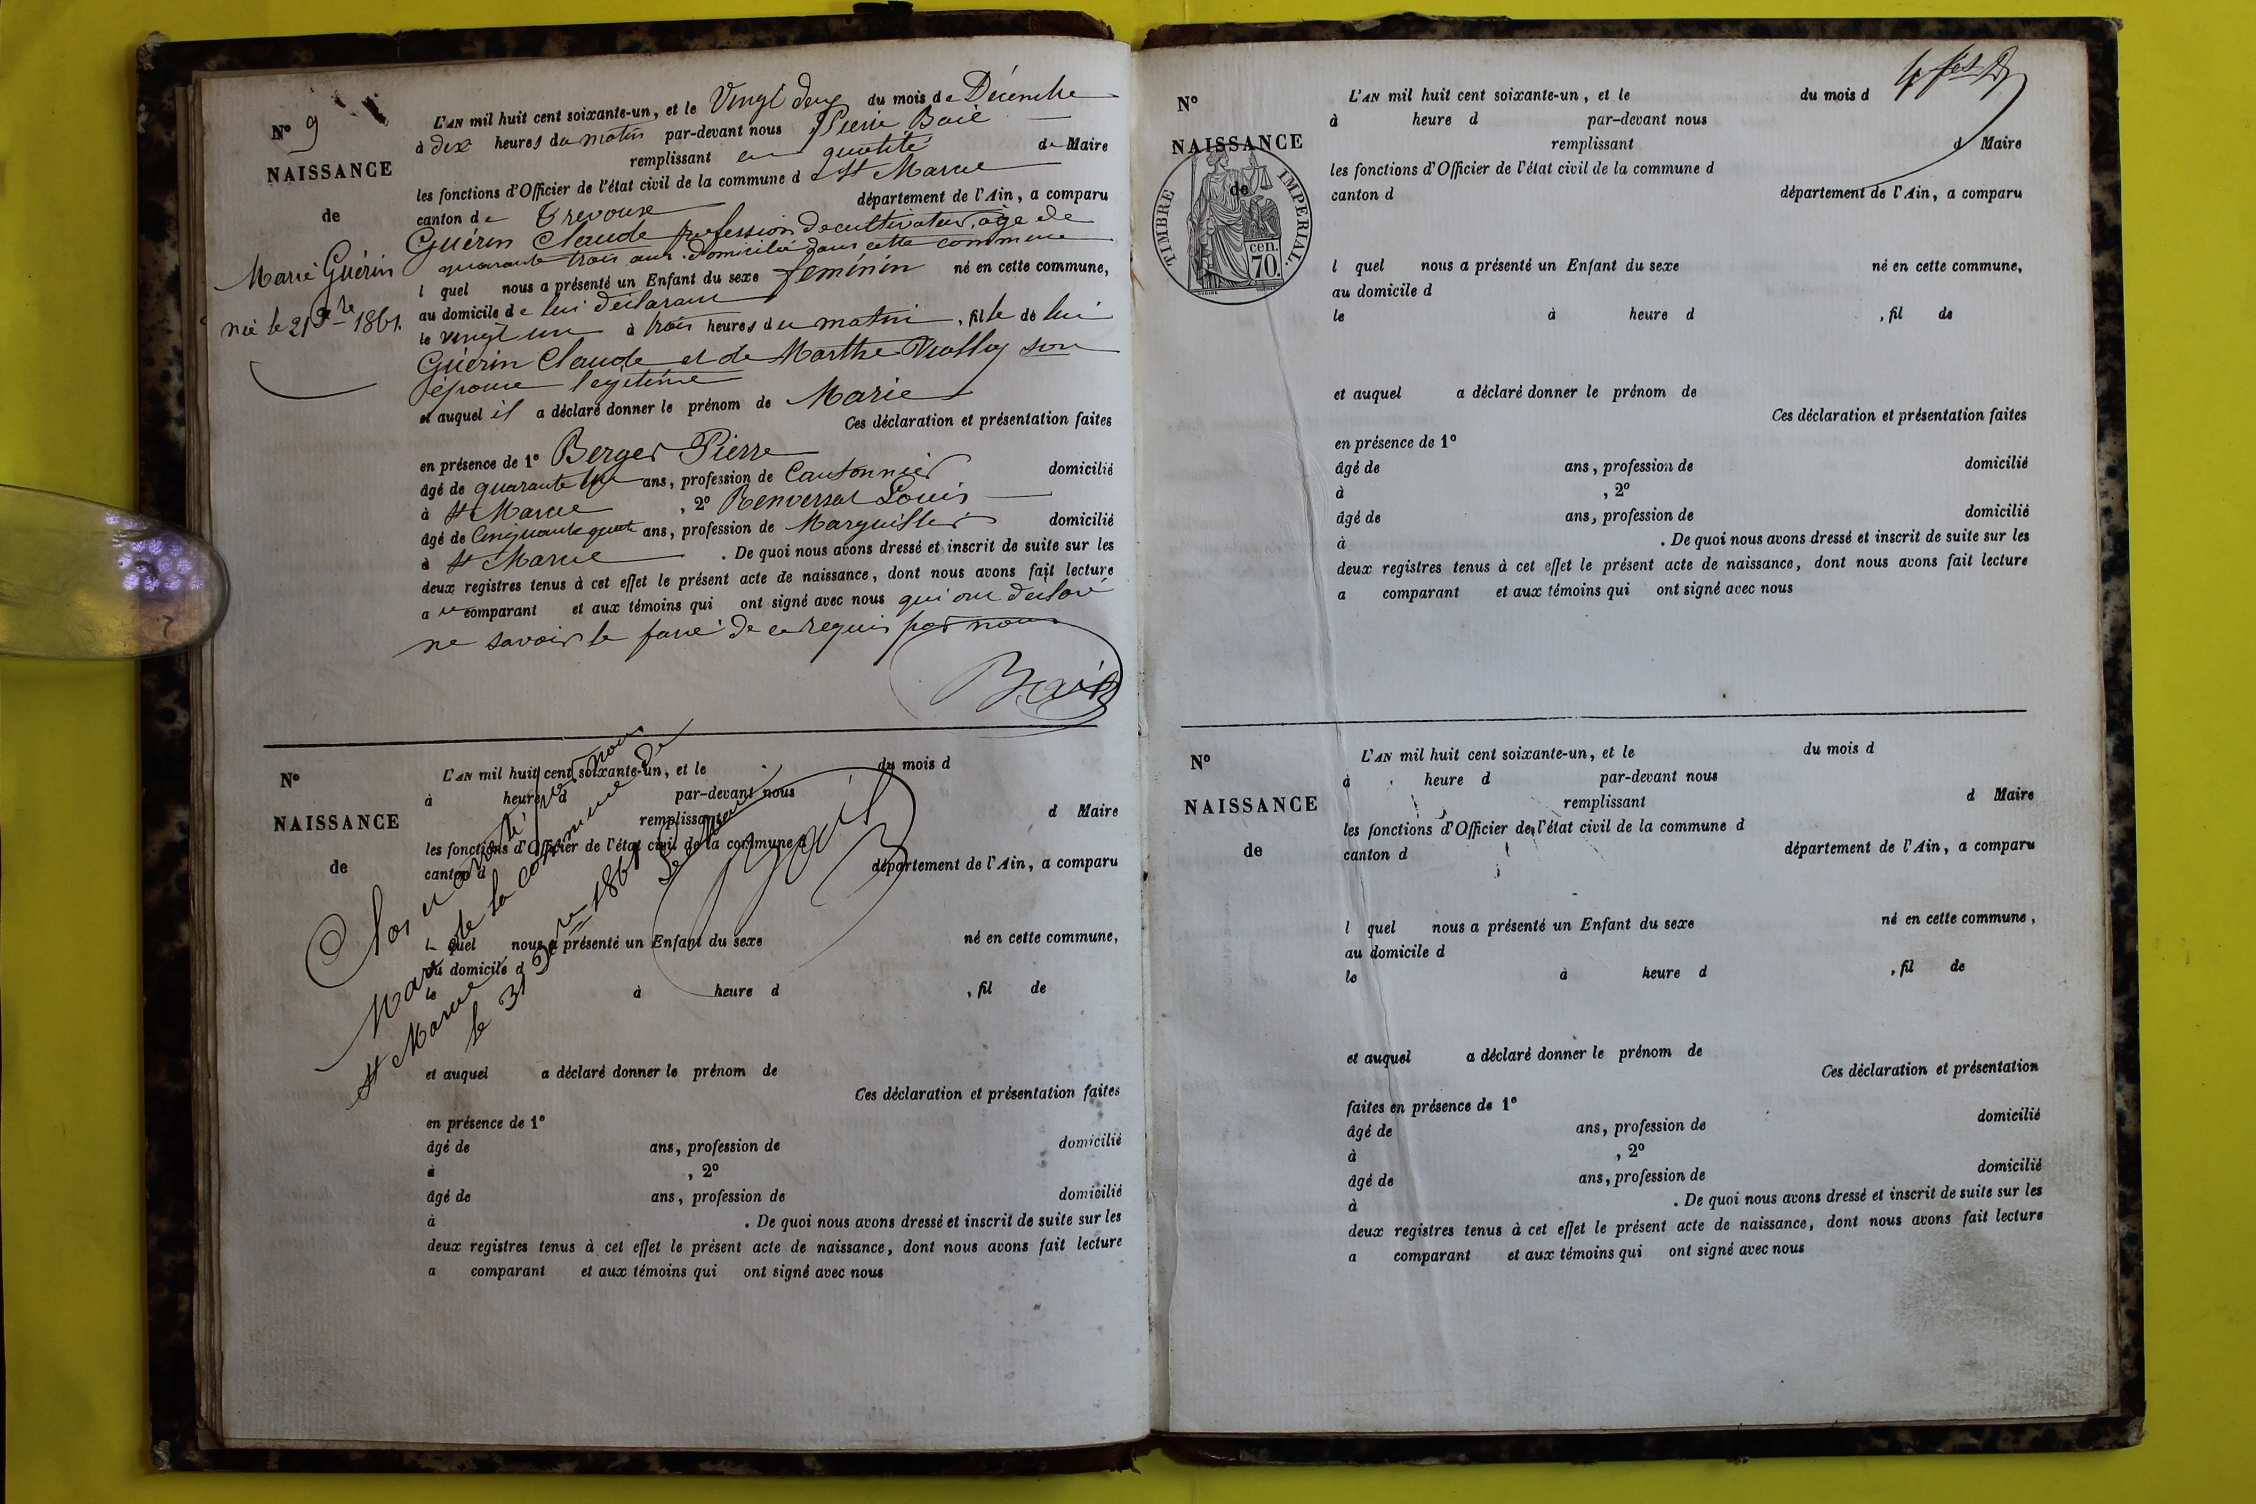 N° 9
NAISSANCE
de
Marie Guérin
née le 21 Xbre 1861.
L'AN mil huit cent soixante-un, et le Vingt deux du mois de Décembre
à dix heures du matin par-devant nous Pierre
remplissant en qualité de Maire
les fonctions d'Officier de l'état civil de la commune de St Marcel
canton de Trevoux département de l'Ain, a comparu
Guérin Claude profession de cultivateur, âgé de
quarante trois ans domicilié dans cette commune
l quel nous a présenté un Enfant du sexe feminin né en cette commune,
au domicile de lui déclarant
le vingt un à trois heures du matin, fille de lui
Guérin Claude et de Marthe son
épouse legitime
et auquel il a déclaré donner le prénom de Marie
Ces déclaration et présentation faites
en présence de 1° Berger Pierre
âgé de quarante ans, profession de Cantonnier domicilié
à St Marcel, 2° Renversat Louis
âgé de Cinquante quatre ans, profession de Marguillier domicilié
à St Marcel. De quoi nous avons dressé et inscrit de suite sur les
deux registres tenus à cet effet le présent acte de naissance, dont nous avons fait lecture
a u comparant et aux témoins qui ont signé avec nous qui ont déclaré
ne savoir le faire de ce requis par nous
N°
NAISSANCE
de
L'AN mil huit cent soixante-un, et le du mois d
à heure d par-devant nous
remplissant d Maire
les fonctions d'Officier de l'état civil de la commune d
canton d département de l'Ain, a comparu
l quel nous a présenté un Enfant du sexe né en cette commune,
au domicile d
le à heure d , fil de
et auquel a déclaré donner le prénom de
Ces déclaration et présentation faites
en présence de 1°
âgé de ans, profession de domicilié
à , 2°
âgé de ans, profession de domicilié
à . De quoi nous avons dressé et inscrit de suite sur les
deux registres tenus à cet effet le présent acte de naissance, dont nous avons fait lecture
a comparant et aux témoins qui ont signé avec nous
Clos et arrêté par nous
Maire de la commune de
St Marcel
le 31 Xbre 1861 Le Maire
N°
NAISSANCE
de
TIMBRE IMPERIAL.
cen.
70.
L'AN mil huit cent soixante-un, et le du mois d
à heure d par-devant nous
remplissant d Maire
les fonctions d'Officier de l'état civil de la commune d
canton d département de l'Ain, a comparu
l quel nous a présenté un Enfant du sexe né en cette commune,
au domicile d
le à heure d , fil de
et auquel a déclaré donner le prénom de
Ces déclaration et présentation faites
en présence de 1°
âgé de ans, profession de domicilié
à , 2°
âgé de ans, profession de domicilié
à . De quoi nous avons dressé et inscrit de suite sur les
deux registres tenus à cet effet le présent acte de naissance, dont nous avons fait lecture
a comparant et aux témoins qui ont signé avec nous
N°
NAISSANCE
de
L'AN mil huit cent soixante-un, et le du mois d
à heure d par-devant nous
remplissant d Maire
les fonctions d'Officier de l'état civil de la commune d
canton d département de l'Ain, a comparu
l quel nous a présenté un Enfant du sexe né en cette commune,
au domicile d
le à heure d , fil de
et auquel a déclaré donner le prénom de
Ces déclaration et présentation
faites en présence de 1°
âgé de ans, profession de domicilié
à , 2°
âgé de ans, profession de domicilié
à . De quoi nous avons dressé et inscrit de suite sur les
deux registres tenus à cet effet le présent acte de naissance, dont nous avons fait lecture
a comparant et aux témoins qui ont signé avec nous